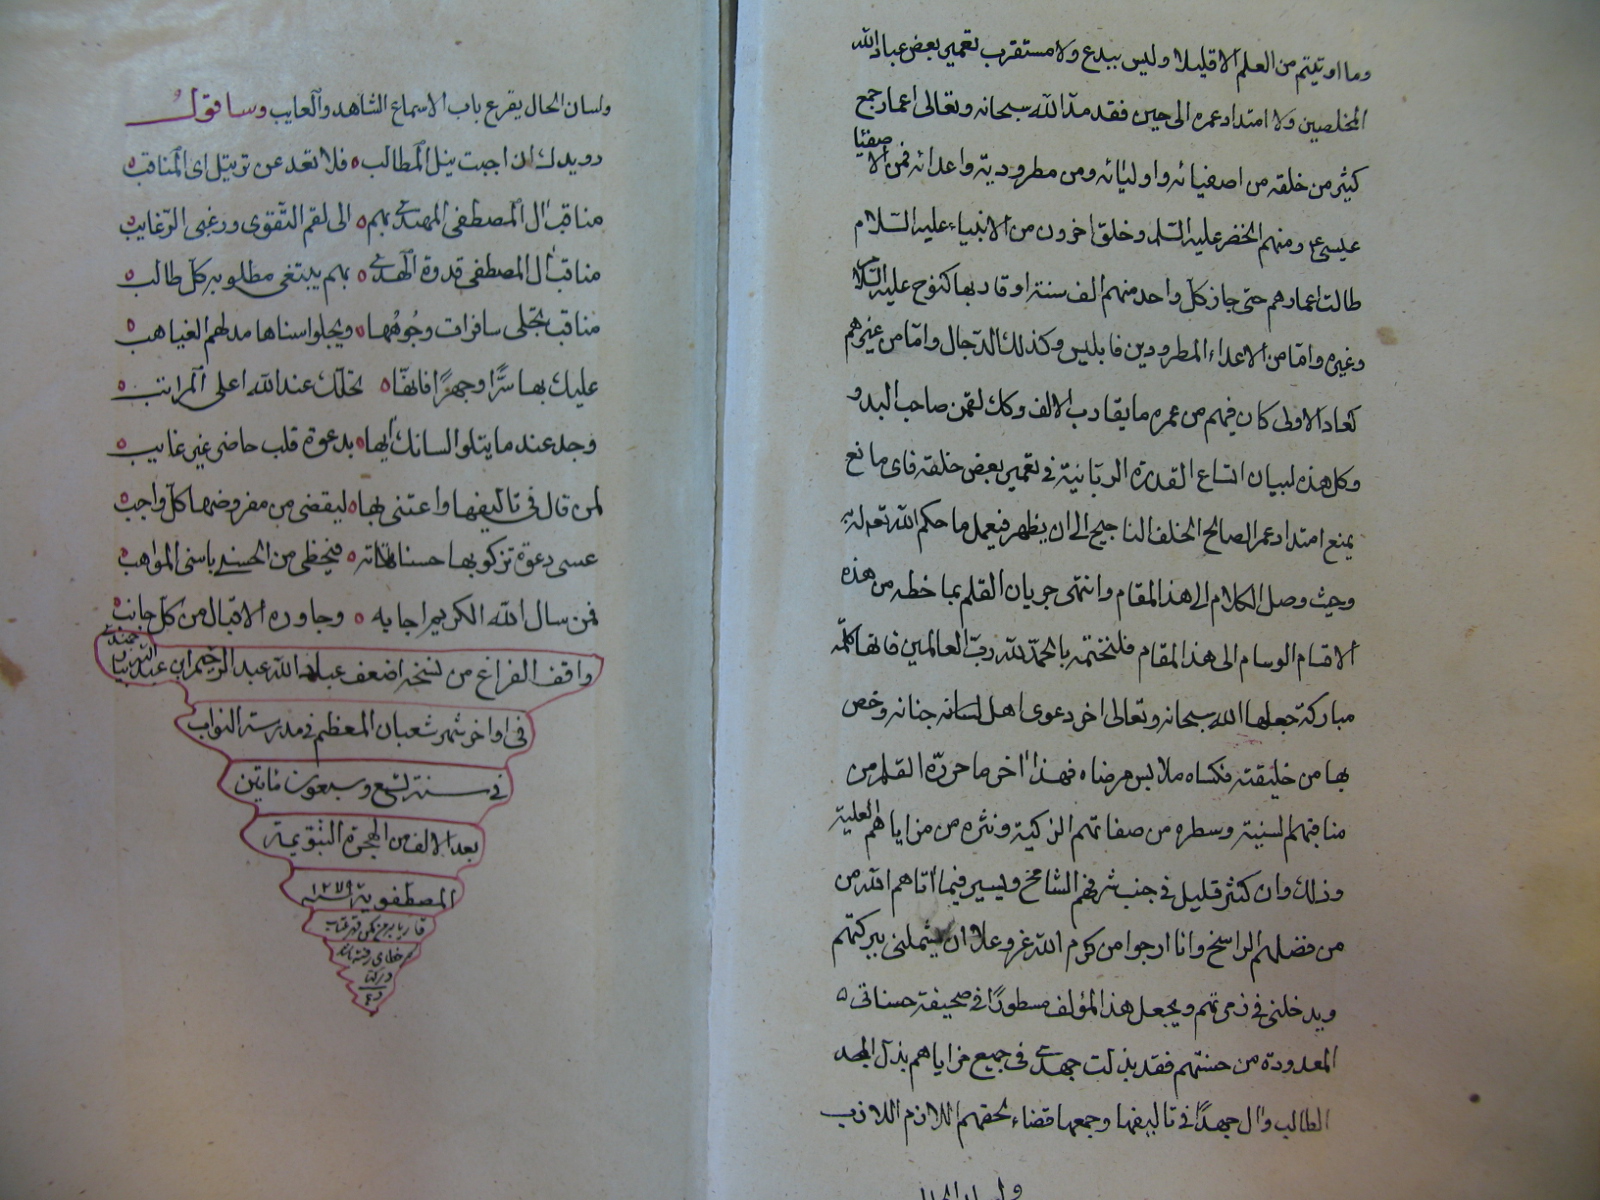 وما اوتيتم من العلم الا قليلا وليس ببدع ولا مستغرب تعمير بعض عباد الله
المخلصين ولا امتداد عمره الى حين فقد مدّ الله سبحانه وتعالى اعمار جمع
كثير من خلقه من اصفيائه واوليائه ومن مطروديه واعدائه فمن الاصفيا
عيسى ع ومنهم الخضر عليه السّلم وخلق اخرون من الانبياء عليه السّلام
طالت اعمارهم حتى جاز كلّ واحد منهم الف سنة او قاربها كنوح عليه السّلام
وغيره وامّا من الاعداء المطرودين فابليس وكذلك الدّجال وامّا من غيرهم
كعاد الاولى كان فيهم من عمره ما يقارب الالف وكذلك لقمن صاحب البد و
وكل هذه لبيان اتساع القدرة الربّانيّة في تعمير بعض خلقه فاى مانع
يمنع امتداد عمر الصالح الخلف الناجح الى ان يظهر فيعمل ما حكم الله تعه له به
وحيث وصل الكلام الى هذا المقام وانتهى جريان القلم بما خطه من هذه
الاقسام الوسام الى هذا المقام فلنختتمه بالحمد لله ربّ العالمين فانها كلمة
مباركة جعلها الله سبحانه وتعالى اخر دعوى اهل لسانه جنانه وخص
بها من خليقته فكساه ملابس مرضاه فهذا اخر ما حرّره القلم من
مناقبهم السنية وسطره من صفاتهم الزكية ونثره من مزاياهم العلية
وذلك وان كثر قليل في جنب شرفهم الشامخ ويسير فيما اتاهم الله من
من فضلهم الراسخ وانا ارجوا من كرم الله عز وعلا ان يشملني ببركتهم
ويدخلني في زمرتهم ويجعل هذا المؤلف مسطورًا في صحيفة حسناتى ٥
المعدودة من حسنتهم فقد بذلت جهدى في جميع مزاياهم بذل المجد
الطالب وال جهدًا في تاليفها وجمعها قضاء لحقهم اللازم اللازب
ولسان الحال
ولسان الحال يقرع باب الاسماع الشاهد والغايب وسا قول
رويدك ان احببت نيل المطالب ٥ فلا تعد عن ترتيل اى المناقب ٥
مناقب ال المصطفى المهتدى بهم ٥ الى نقم التّقوى ورغبى الرّغايب ٥
مناقب ال المصطفى قدوة الهدى ٥ بهم يبتغى مطلوبه كلّ طالب ٥
مناقب تجلى سافرات وجُوهُها ٥ ويجلوا سناها مدلهم الغياهب ٥
عليك بها سرًّا وجهرًا فانّها ٥ تحلّك عند الله اعلى المراتب ٥
وجد عند ما يتلوا لسانك ايها ٥ بدعوة قلب حاضر غير غايب ٥
لمن قال في تاليفها واعتنى بها ٥ ليقضى من مفروضها كلّ واجب ٥
عسى دعوة تزكو بها حسناته ٥ فيحظى من الحسنى باسنى المواهب ٥
فمن سال الله الكريم اجابه ٥ وجاوره الاقبال من كلّ جانب ٥
واقف الفراغ من نسخه اضعف عباد الله عبد الرحيم ابن عبد الله
في اواخر شهر شعبان المعظم في مدرسة النواب
في سنة تسع وسبعون مأتين
بعد الالف من الهجرة النّبّويّة
المصطفوية سنه ١٢٧٩
قاريا بر من مكن قهر عتاب
گر خطاى رفته باشد
در كتاب